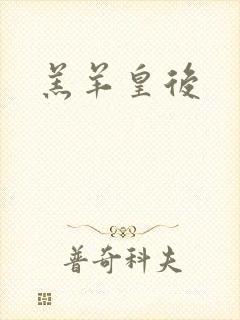 羔羊皇後
普奇科夫